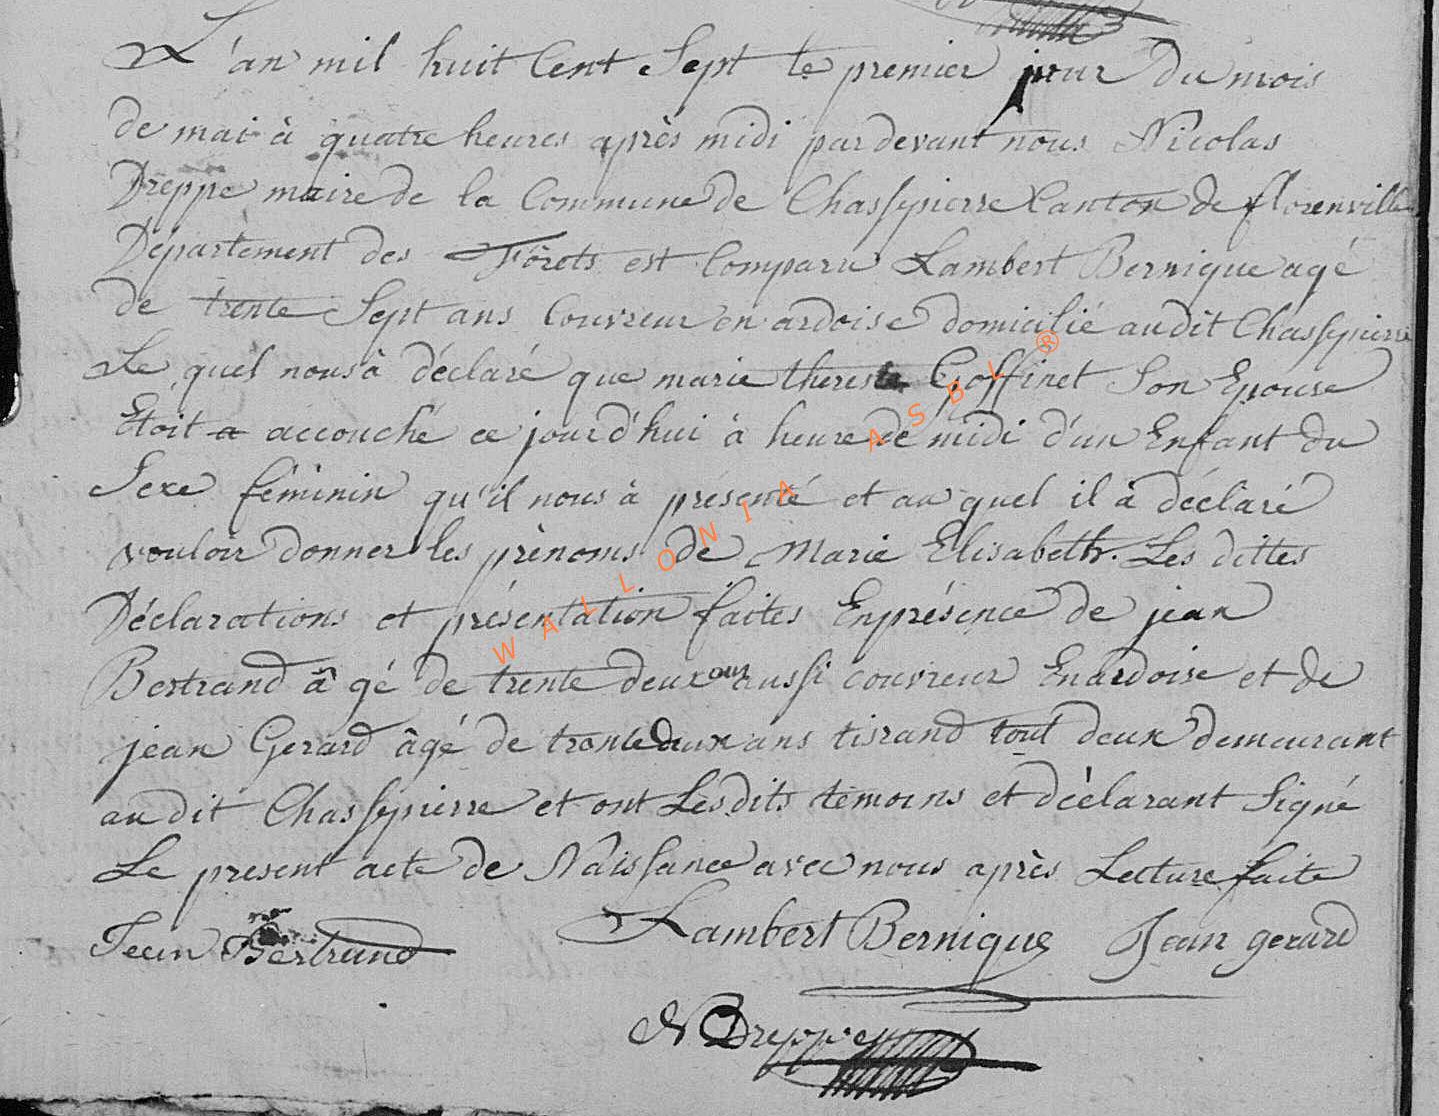 L'an mil huit Cent Sept le premier jour du mois
de mai à quatre heures après midi pardevant nous Nicolas
Dreppe maire de la Commune de Chassepierre Canton de florenville
Département des Forêts est Comparu Lambert Bernique agé
de trente Sept ans Couvreur en ardoise domicilié audit Chassepierre
Le quel nous à déclaré que marie therese Goffinet Son Epouse
Etoit a accouché ce jourd'hui à heure de midi d'un Enfant du
Sexe féminin qu'il nous à présenté et au quel il à déclaré
vouloir donner les prénoms de Marie Elisabeth. Les dittes
Déclarations et présentation faites En présence de jean
Bertrand âgé de trente deux ans aussi couvreur En ardoise et de
jean Gerard âgé de trente deux ans tisrand tout deux demeurant
audit Chassepierre et ont Lesdits témoins et déclarant Signé
Le present acte de Naissance avec nous après Lecture faite
Jean Bertrand Lambert Bernique Jean gerard
N Dreppe
WALLONIA ASBL ®